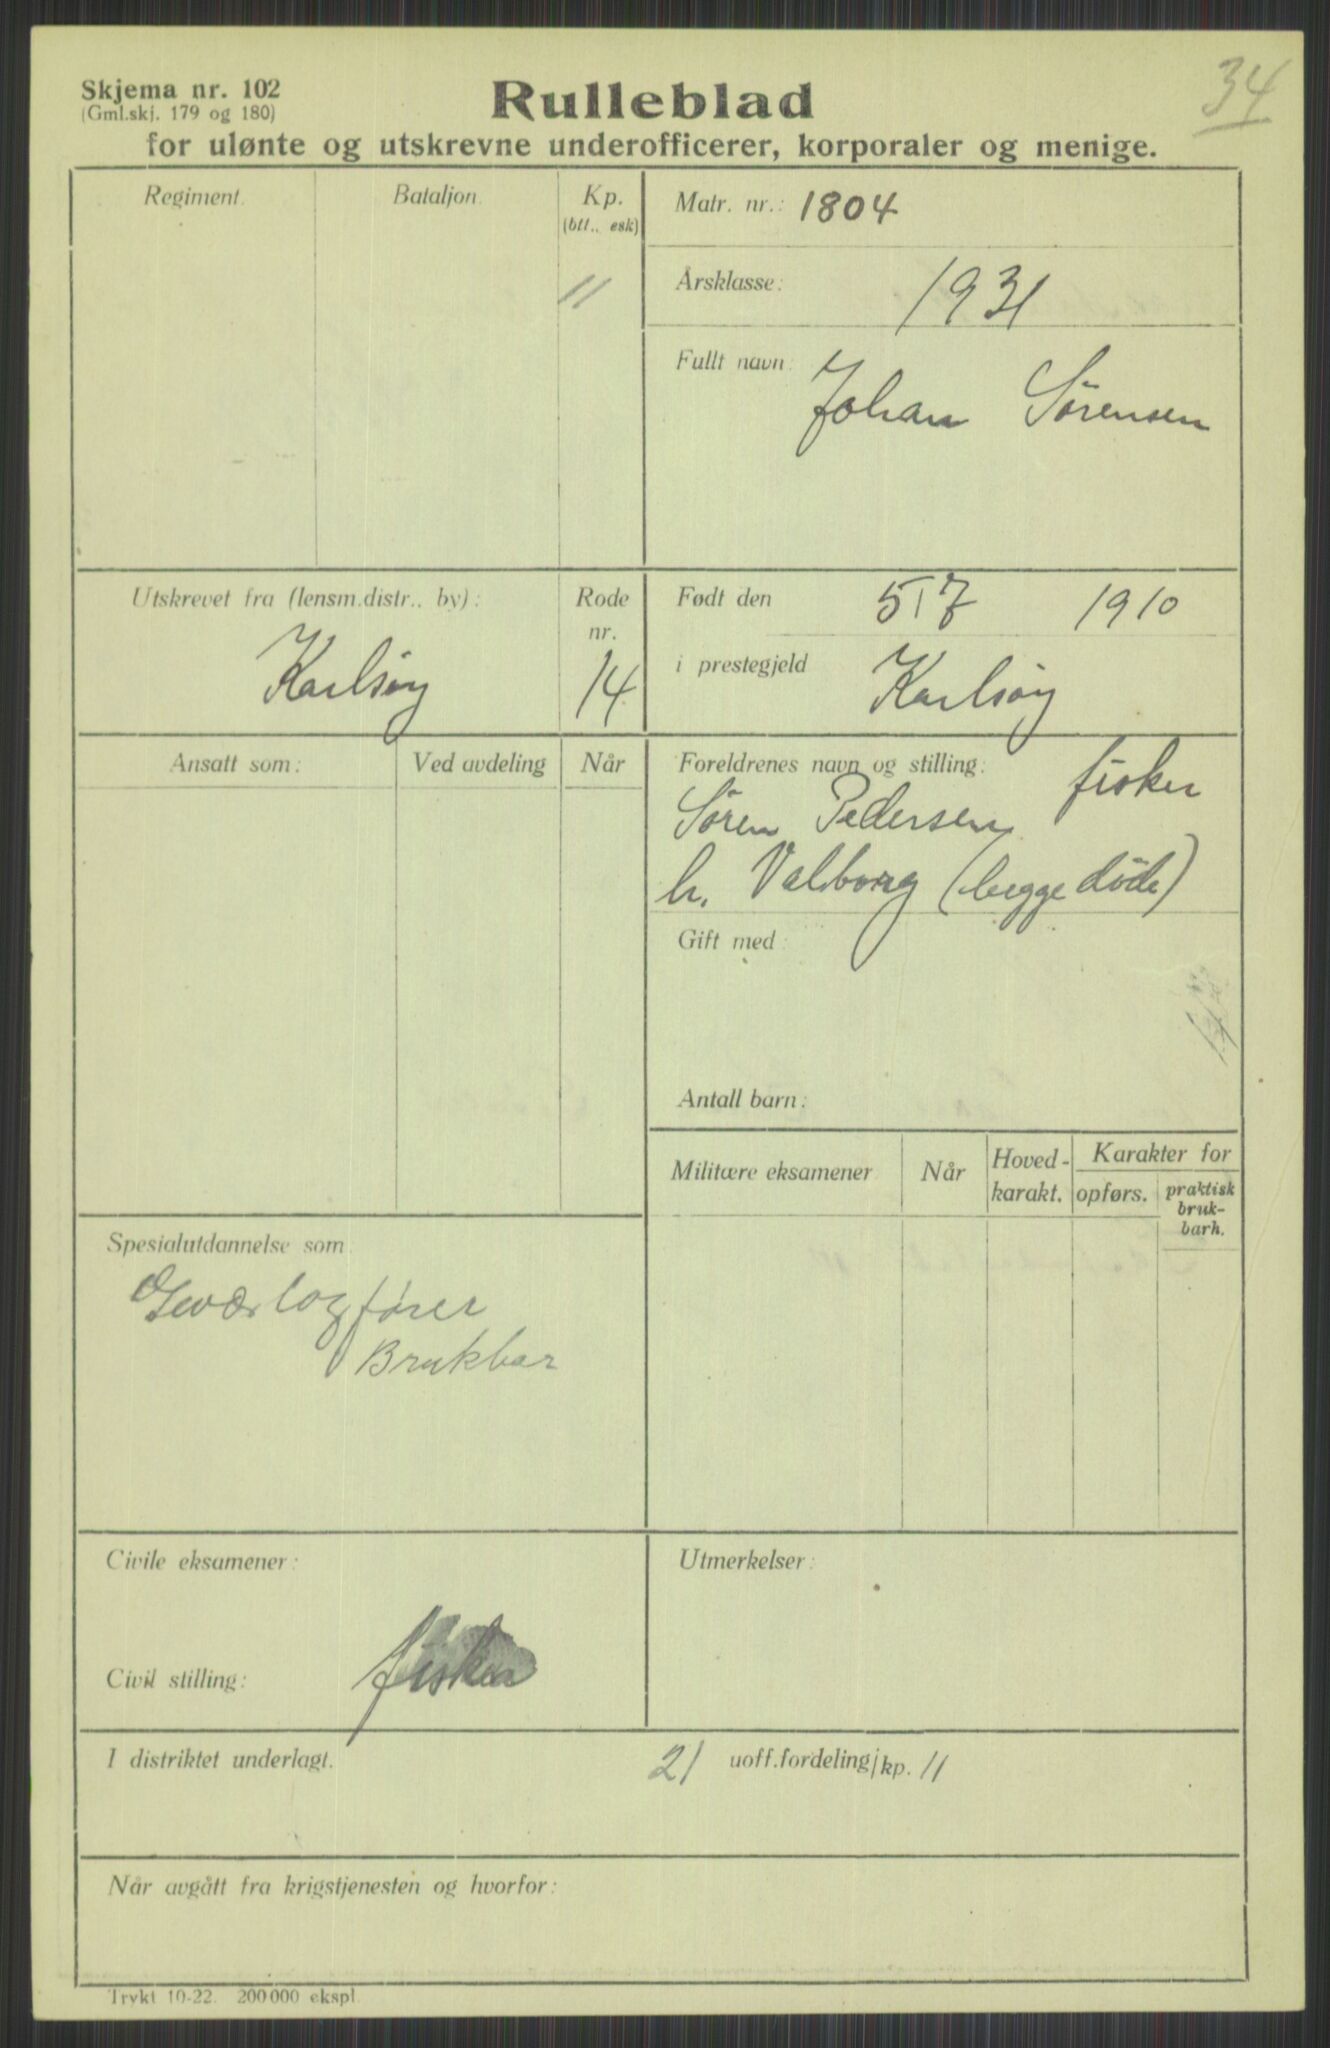 34
Skjema nr. 102
(Gml.skj. 179 og 180)
Rulleblad
for ulønte og utskrevne underofficerer, korporaler og menige.
Regiment. Bataljon. Kp.
(btt., esk)
11
Matr. nr.: 1804
Årsklasse: 1931
Fullt navn: Johan Sørensen
Utskrevet fra (lensm.distr., by): Rode
nr.
Karlsøy 14
Født den 5/7 1910
i prestegjeld Karlsøy
Ansatt som: Ved avdeling Når
Foreldrenes navn og stilling: fisker
Søren Pedersen
h. Valborg (begge døde)
Gift med:
Antall barn:
Militære eksamener Når Hoved-
karakt. Karakter for
opførs. praktisk
bruk-
barh.
Spesialutdannelse som
Geværlagfører
Brukbar
Civile eksamener:
Civil stilling: fisker
Utmerkelser:
I distriktet underlagt. 21 uoff.fordeling/kp. 11
Når avgått fra krigstjenesten og hvorfor:
Trykt 10-22. 200 000 ekspl.